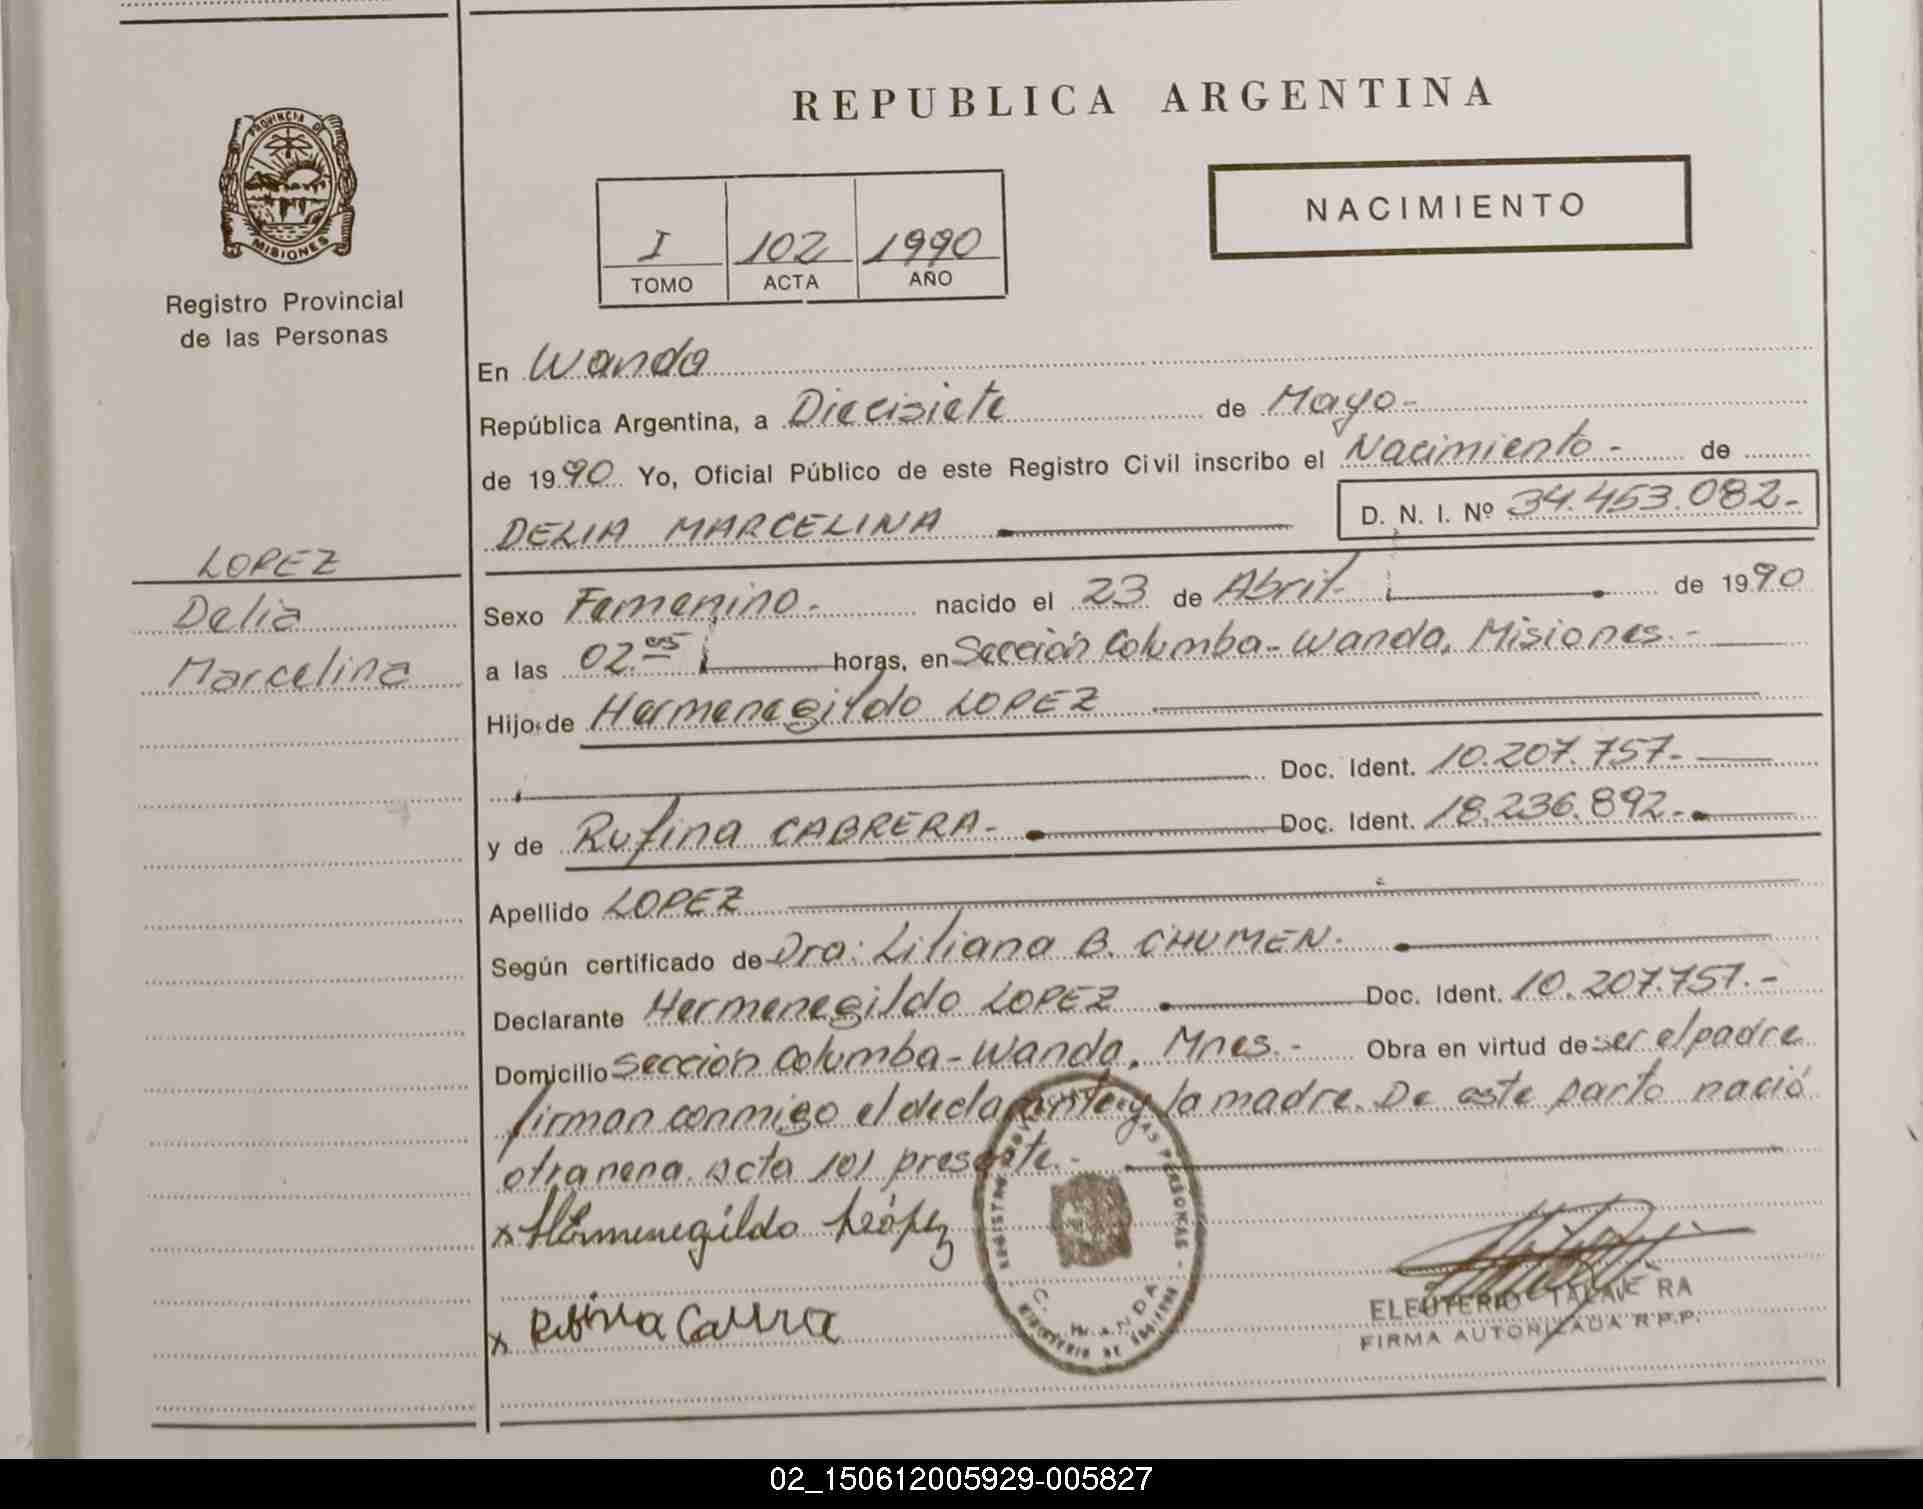 REPUBLICA ARGENTINA
PROVINCIA DE
MISIONES
Registro Provincial
de las Personas
NACIMIENTO
I 102 1990
TOMO ACTA AÑO
En Wanda
República Argentina, a Diecisiete de Mayo-
de 1990 Yo, Oficial Público de este Registro Civil inscribo el Nacimiento - de
DELIA MARCELINA D. N. I. Nº 34.453.082-
LOPEZ
Delia
Marcelina
Sexo Femenino- nacido el 23 de Abril- de 1990
a las 02.05 horas, en Sección Columba-Wanda, Misiones.-
Hijo de Hermenegildo LOPEZ
Doc. Ident. 10.207.757-
y de Rufina CABRERA- Doc. Ident. 18.236.892-
Apellido LOPEZ
Según certificado de Dra: Liliana B. CHUMEN.
Declarante Hermenegildo LOPEZ Doc. Ident. 10.207.757.-
Domicilio Sección Columba-Wanda, Mnes.- Obra en virtud de ser el padre
firman conmigo el declarante y la madre. De este parto nació
otra nena. Acta 101 presente.-
x Hermenegildo Leópez
x Cabrera
REGISTRO PROVINCIAL DE LAS PERSONAS -
WANDA
MINISTERIO DE GOBIERNO
ELEUTERIO TALAVERA
FIRMA AUTORIZADA R.P.P.
02_150612005929-005827